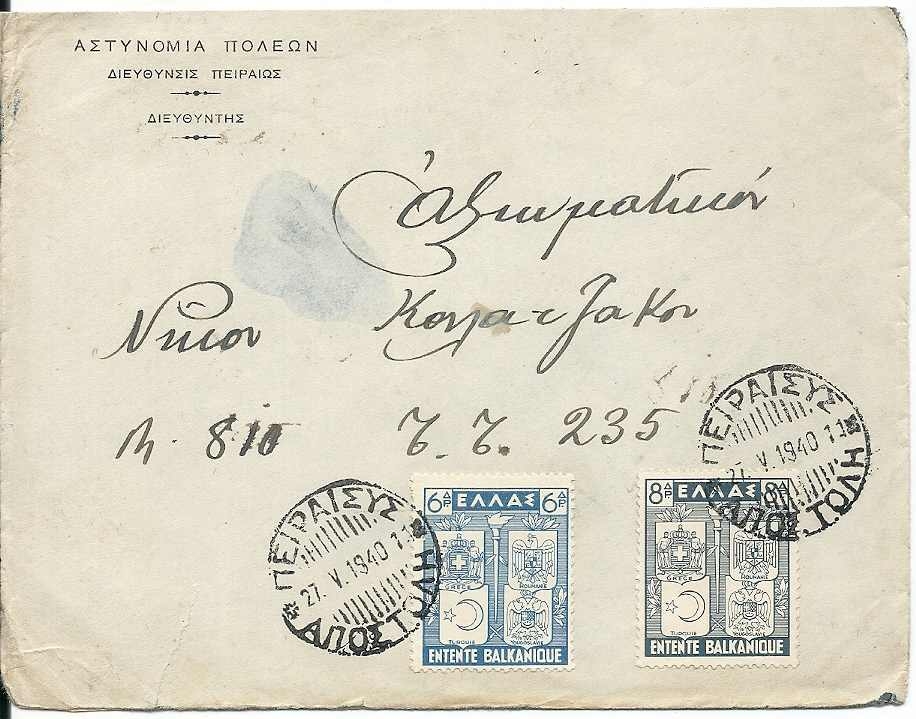 ΑΣΤΥΝΟΜΙΑ ΠΟΛΕΩΝ
ΔΙΕΥΘΥΝΣΙΣ ΠΕΙΡΑΙΩΣ
ΔΙΕΥΘΥΝΤΗΣ
Ἀξιωματικόν
Νῖκον
810 Τ. Τ. 235
ΠΕΙΡΑΙΕΥΣ
27. V. 1940 11
ΑΠΟΣΤΟΛΗ
ΠΕΙΡΑΙΕΥΣ
27. V 1940 11
ΑΠΟΣΤΟΛΗ
6 ΔΡ ΕΛΛΑΣ 6 ΔΡ
GRECE ROUMANIE
TURQUIE YOUGOSLAVIE
ENTENTE BALKANIQUE
8 ΔΡ ΕΛΛΑΣ 8 ΔΡ
GRECE ROUMANIE
TURQUIE YOUGOSLAVIE
ENTENTE BALKANIQUE